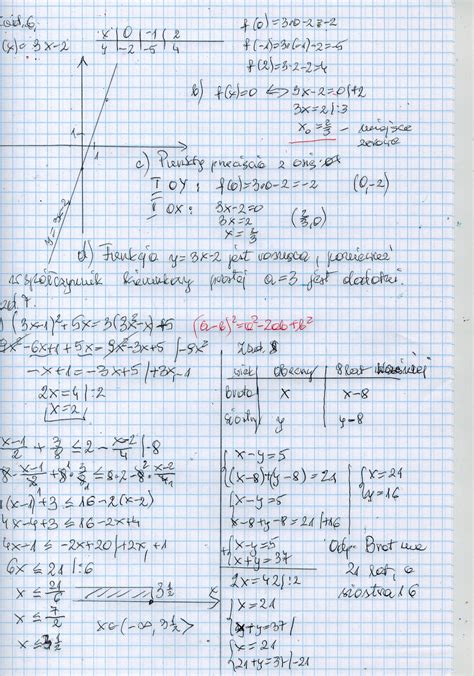 zad. 6.
f(x)=3x-2
x | 0 | -1 | 2
y | -2 | -5 | 4
f(0)=3·0-2=-2
f(-1)=3·(-1)-2=-5
f(2)=3·2-2=4
b) f(x)=0 ⟺ 3x-2=0 |+2
3x=2 |:3
x₀=2/3 - miejsce
zerowe
1
1
y=3x-2
c) Punkty przecięcia z osią:
I OY: f(0)=3·0-2=-2 (0,-2)
II OX: 3x-2=0
3x=2 (2/3,0)
x=2/3
d) Funkcja y=3x-2 jest rosnąca, ponieważ
współczynnik kierunkowy prostej a=3 jest dodatni.
zad. 7.
(3x-1)²+5x=3(3x²-x)+5 (a-b)²=a²-2ab+b²
9x²-6x+1+5x=9x²-3x+5 |-9x²
-x+1=-3x+5 |+3x,-1
2x=4 |:2
x=2
x-1/2 + 3/8 ≤ 2 - x-2/4 |·8
8·x-1/2 + 8·3/8 ≤ 8·2-8·x-2/4
4(x-1)+3 ≤ 16-2(x-2)
4x-4+3 ≤ 16-2x+4
4x-1 ≤ -2x+20 |+2x,+1
6x ≤ 21 |:6
x ≤ 21/6
x ≤ 7/2
x ≤ 3½
3½ x
x∈(-∞, 3½⟩
Zad. 8
wiek | obecny | 8 lat wcześniej
brata | x | x-8
siostry | y | y-8
x-y=5
(x-8)+(y-8)=21
x=21
y=16
x-y=5
x-8+y-8=21 |+16
x-y=5
x+y=37
2x=42 |:2
x=21
x+y=37
x=21
21+y=37 |-21
Odp. Brat ma
21 lat, a
siostra 16